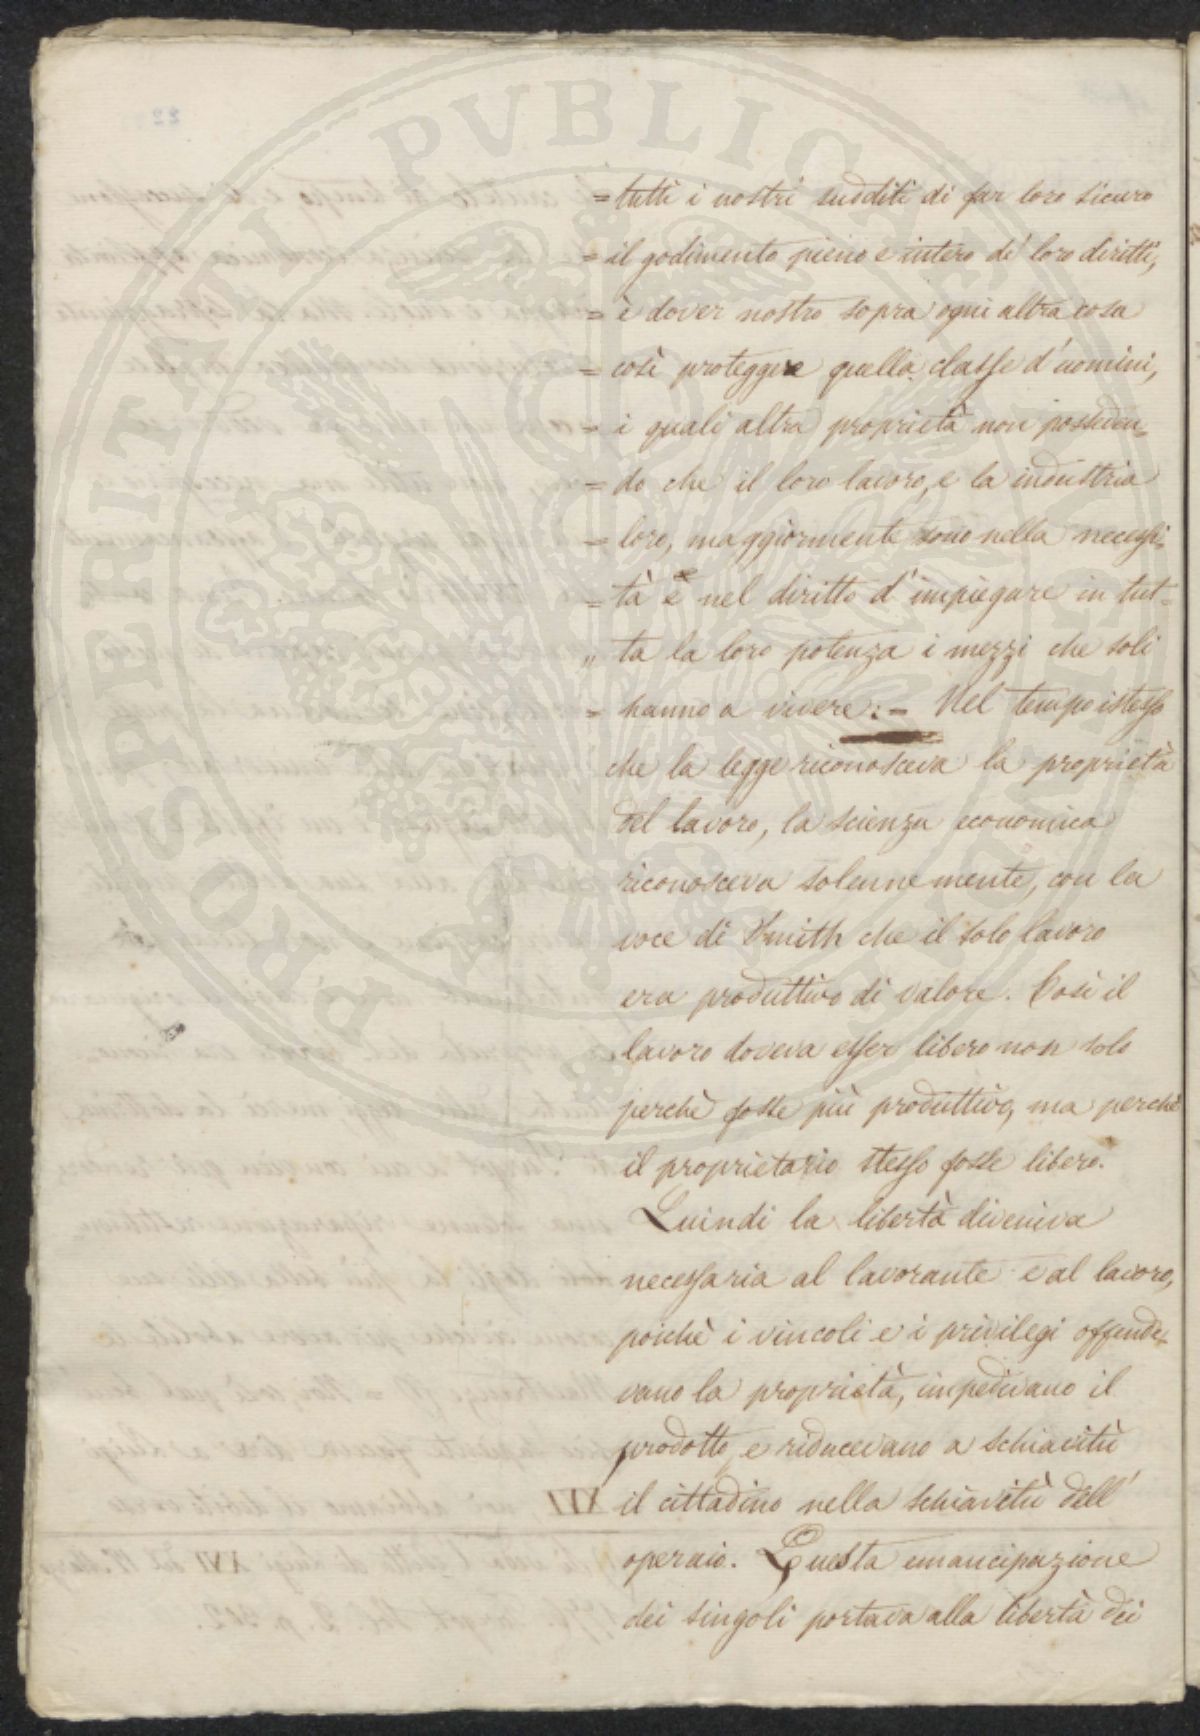 = tutti i nostri sudditi di far loro sicuro
= il godimento pieno e intero de' loro diritti,
= è dover nostro sopra ogni altra cosa
= così proteggere quella classe d'uomini,
= i quali altra proprietà non posseden=
= do che il loro lavoro, e la industria
= loro, maggiormente sono nella necessi=
= tà e nel diritto d'impiegare in tut=
" ta la loro potenza i mezzi che soli
= hanno a vivere: = Nel tempo istesso
che la legge riconosceva la proprietà
del lavoro, la scienza economica
riconosceva solennemente, con la
voce di Smith che il solo lavoro
era produttivo di valore. Così il
lavoro doveva esser libero non solo
perchè fosse più produttivo, ma perchè
il proprietario stesso fosse libero.
Quindi la libertà diveniva
necessaria al lavorante e al lavoro,
poichè i vincoli e i privilegi offende=
vano la proprietà, impedivano il
prodotto, e riducevano a schiavitù
il cittadino nella schiavitù dell'
operaio. Questa emancipazione
dei singoli portava alla libertà dei
PROSPERITATI PVBLICAE AVGENDAE